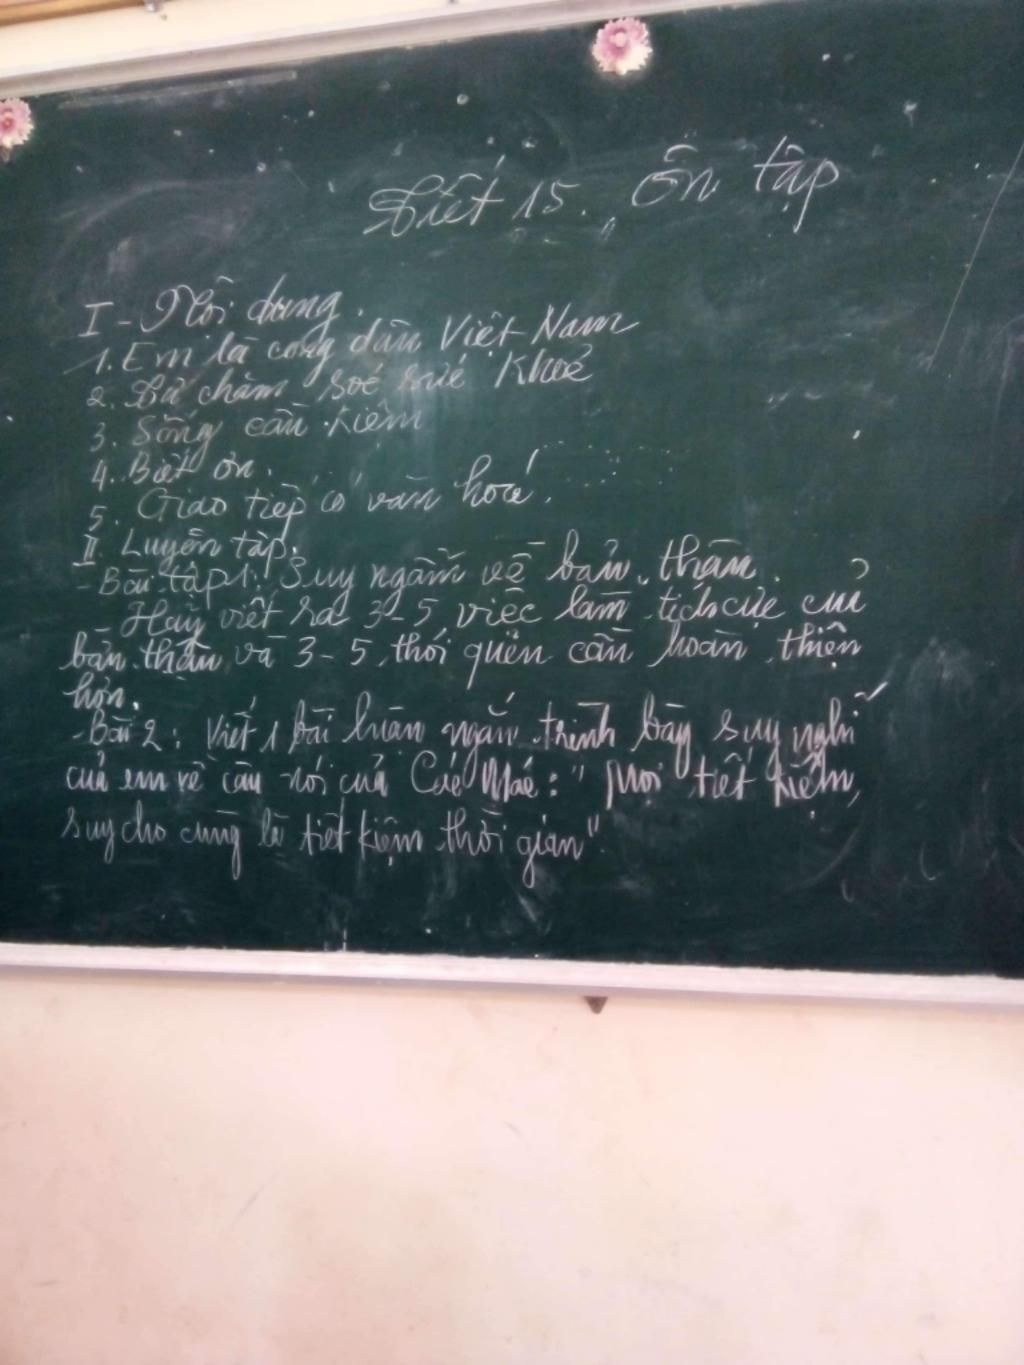 Tiết 15. Ôn tập
I - Nội dung.
1. Em là công dân Việt Nam
2. Tự chăm sóc sức khoẻ
3. Sống cần kiệm
4. Biết ơn.
5. Giao tiếp có văn hoá.
II. Luyện tập.
- Bài tập 1: Suy ngẫm về bản thân.
- Hãy viết ra 3-5 việc làm tích cực của
bản thân và 3-5 thói quen cần hoàn thiện
hơn.
- Bài 2: Viết 1 bài luận ngắn trình bày suy nghĩ
của em về câu nói của Các Mác: "Mọi tiết kiệm,
suy cho cùng là tiết kiệm thời gian".